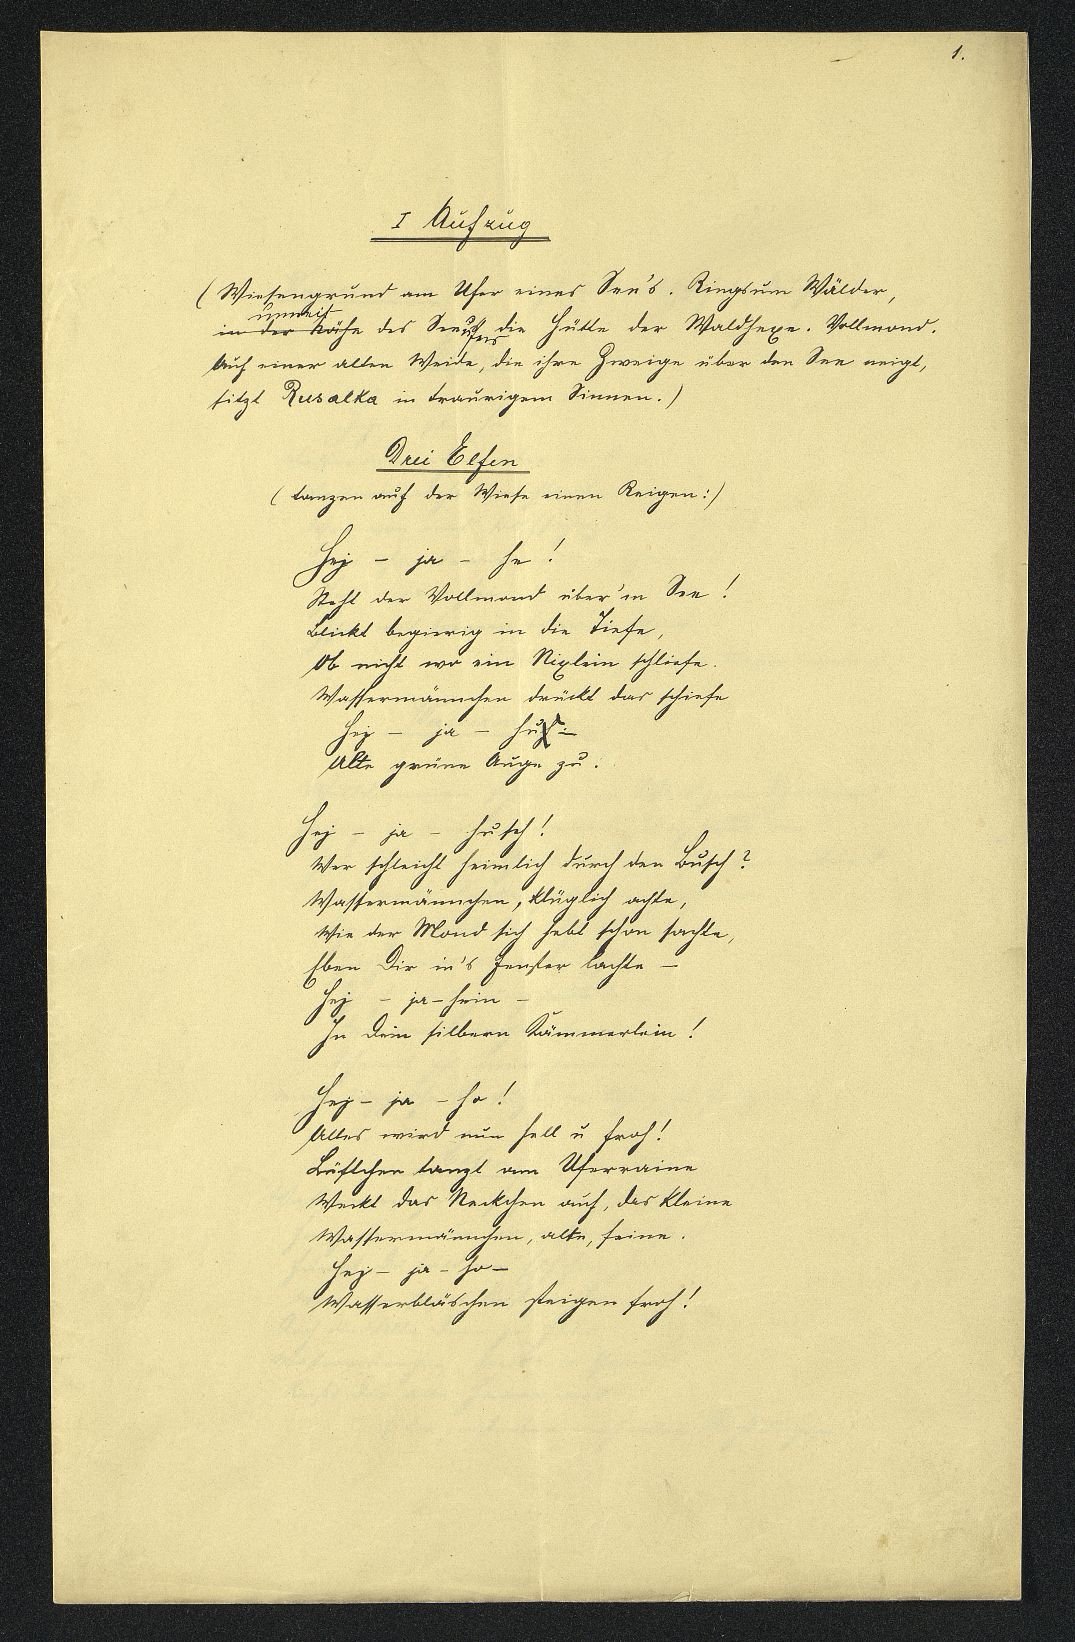 1.
I Aufzug
(Wiesengrund am Ufer eines See's. Ringsum Wälder,
unweit
in der Nähe des Seeufers die Hütte der Waldhexe. Vollmond.
Auf einer alten Weide, die ihre Zweige über den See neigt,
sitzt Rusalka in traurigem Sinnen.)
Drei Elfen
(tanzen auf der Wiese einen Reigen:)
Hej – ja – he!
Steht der Vollmond über'm See!
Blickt begierig in die Tiefe,
Ob nicht wo ein Nixlein schliefe.
Wassermännchen drückt das schiefe
Hej – ja – hu –
Alte grüne Auge zu.
Hej – ja – husch!
Wer schleicht heimlich durch den Busch?
Wassermännchen, klüglich achte,
Wie der Mond sich hebt schon sachte,
Eben Dir in's Fenster lachte –
Hej – ja – hein –
In Dein silbern Kämmerlein!
Hej – ja – ho!
Alles wird nun hell u froh!
Lüftchen tanzt am Uferraine
Weckt das Neckchen auf, das kleine
Wassermännchen, alte, feine.
Hej – ja – ho –
Wasserbläschen steigen froh!